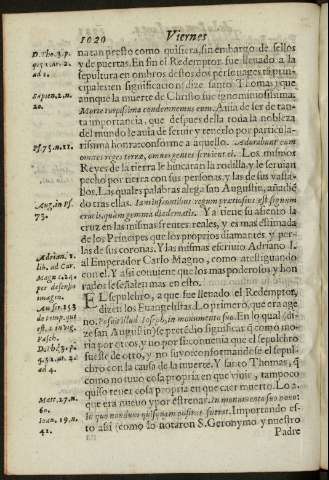 1020 Viernes
D. Tho. 3. p.
q. 51. ar. 2.
ad 1.
Sapien. 2. n.
20.
Ps. 71. n. 11.
Aug. in Ps.
73.
Adrian. 1.
lib. ad Car.
Mag. c. 24.
per defensio
imagin.
Au ser. 133
de temp. qui
est. 2. in vig.
Pasch.
D. Th. 3. p.
q. 51. ar. 2.
ad 4.
Mat. 27. n.
60.
Ioan. 19. n.
41.
na tan presto como quisiera, sin embargo de sellos
y de puertas. En fin el Redemptor fue lleuado a la
sepultura en ombros de los dos personages tã prin-
cipales: en significacion (dize santo Thomas) que
aunque la muerte de Christo fue ignominiosissima,
Morte turpissima condemnemus eum. Auia de ser de tan
ta importancia, que despues della toda la nobleza
del mundo le auia de seruir y tenerlo por particula-
rissima honra: conforme a aquello. Adorabunt eum
omnes reges terra, omnes gentes seruient ei. Los mismos
Reyes de la tierra le hincaràn la rodilla, y le seruiràn
pecho por tierra con sus personas, y las de sus vassa-
llos. Las quales palabras alega san Augustin, añadiẽ
do tras ellas. Iam in frontibus regum pratiosius est signum
crucis, quàm gemma diadematis. Ya tiene su assiento la
cruz en las mismas frentes reales, y es mas estimada
de los Principes que los proprios diamantes y per-
las de sus coronas. Y las mismas escriuio Adriano I.
al Emperador Carlo Magno, como atestiguando
con el. Y assi conuiene que los mas poderosos y hon
rados se señalen mas en esto.
EL sepulchro, a que fue lleuado el Redemptor,
dizen los Euangelistas. Lo primero, que era age
no. Posuit illud Ioseph, in monumento suo. En lo qual (di-
ze san Augustin) se pretẽdio significar, q̃ como mo-
ria por otros, y no por si: conuenia que el sepulchro
fuesse de otro, y no suyo: conformandose el sepul-
chro con la causa de la muerte. Y santo Thomas, q̃
como no tuuo cosa propria en que viuir, tampoco
quiso tener cosa propria en que caer muerto. Lo 2.
que era nueuo y por estrenar. In monumento suo nouo:
In quo nondum quisquam positus fuerat. Importando es-
to assi (como lo notaron S. Geronymo y nuestro
Padre